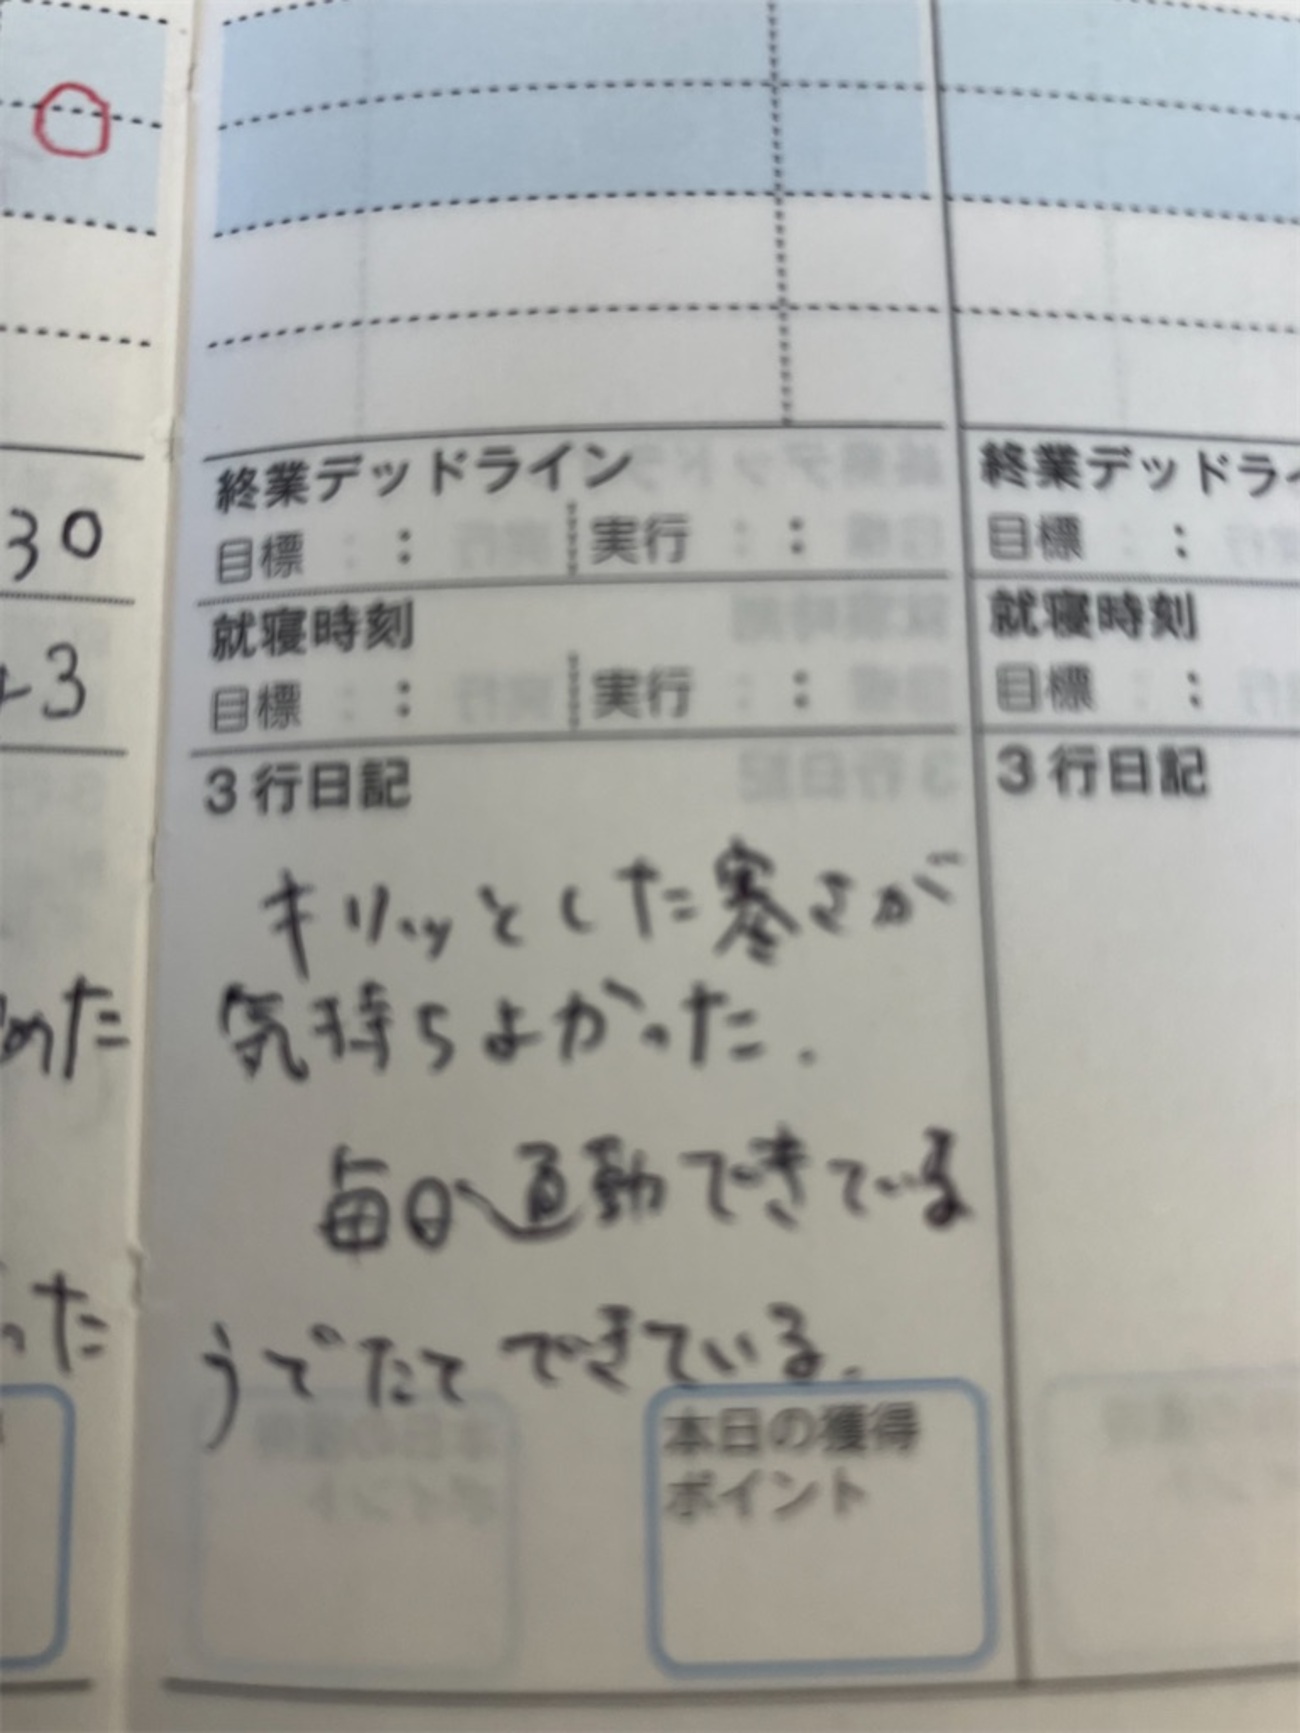 30
3
めた
った
終業デッドライン
目標 : 実行 :
就寝時刻
目標 : 実行 :
3行日記
キリッとした寒さが
気持ちよかった.
毎日通勤できている
うでたてできている.
本日の獲得
ポイント
終業デッドライ
目標 :
就寝時刻
目標 :
3行日記